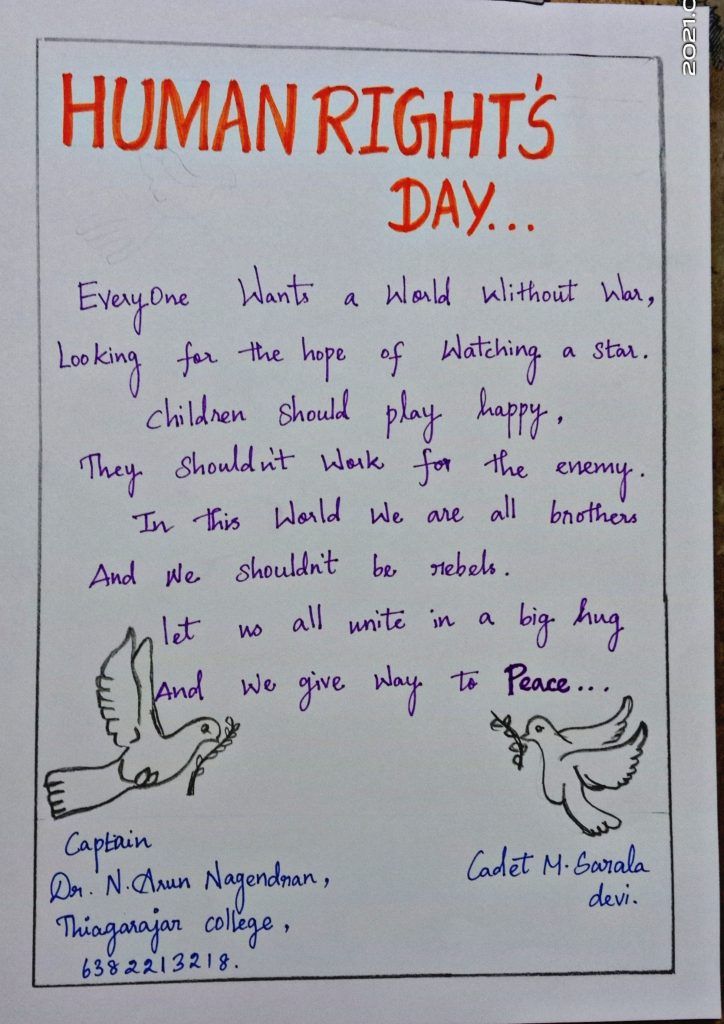 2021.0
HUMAN RIGHT'S
DAY...
EveryOne Wants a World Without War,
Looking for the hope of Watching a Star.
Children Should play happy,
They Shouldn't Work for the enemy.
In this World We are all brothers
And We Shouldn't be rebels.
let us all unite in a big hug
And We give Way to Peace...
Captain
Dr. N. Arun Nagendran,
Thiagarajar college,
6382213218.
Cadet M. Sarala
devi.